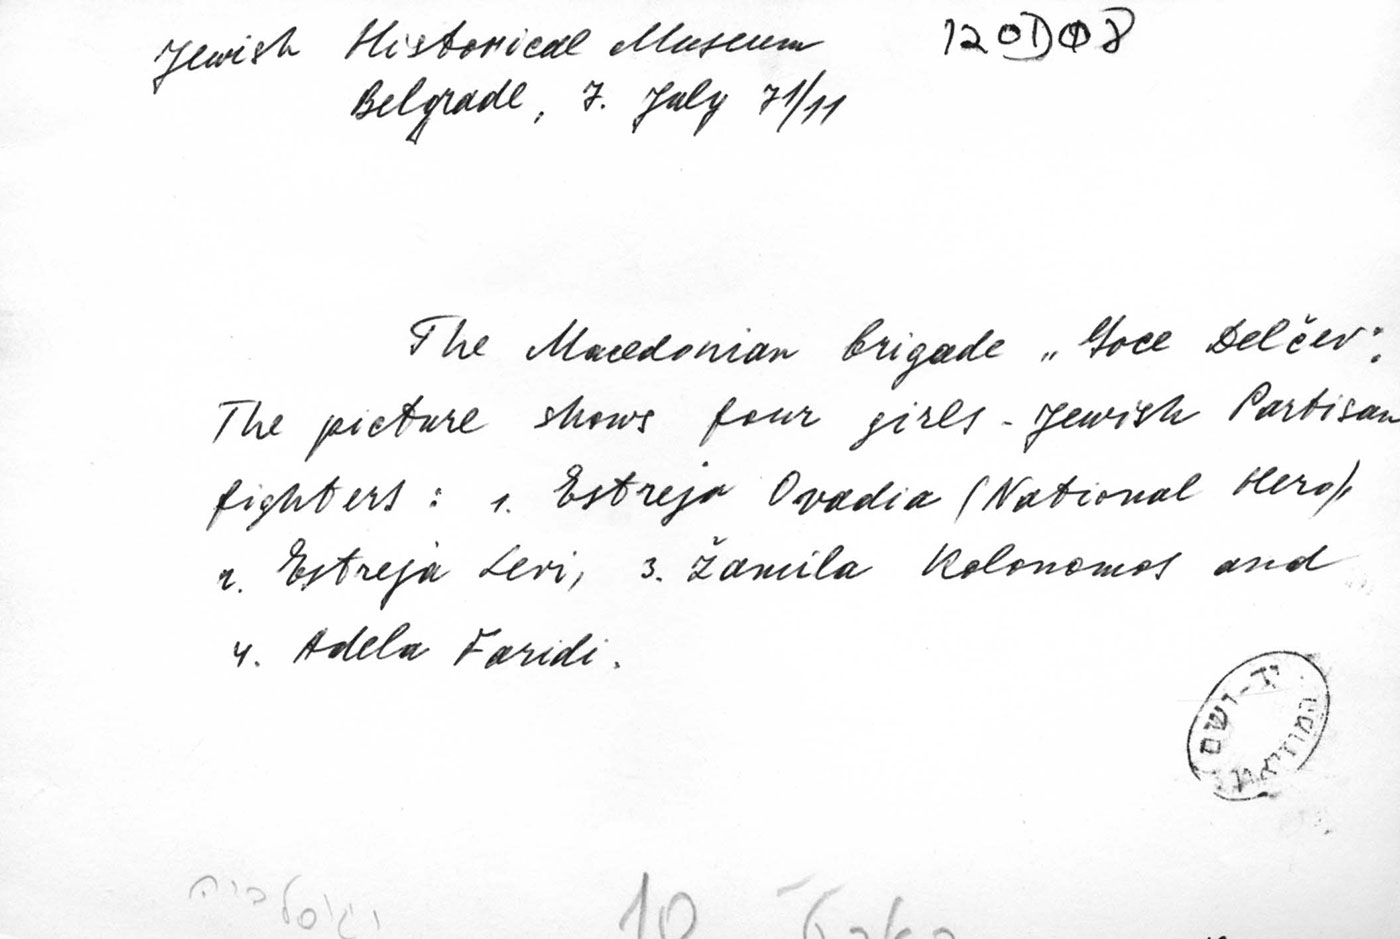 Jewish Historical Museum
120D08
Belgrade, 7. July 71/11
The Macedonian brigade „Goce Delčev".
The picture shows four girls - Jewish Partisan
fighters: 1. Estreja Ovadia (National Hero),
2. Estreja Levi, 3. Žamila Kolonomos and
4. Adela Faridi.
יד-ושם
המוזיאון
יגוסלביה
10